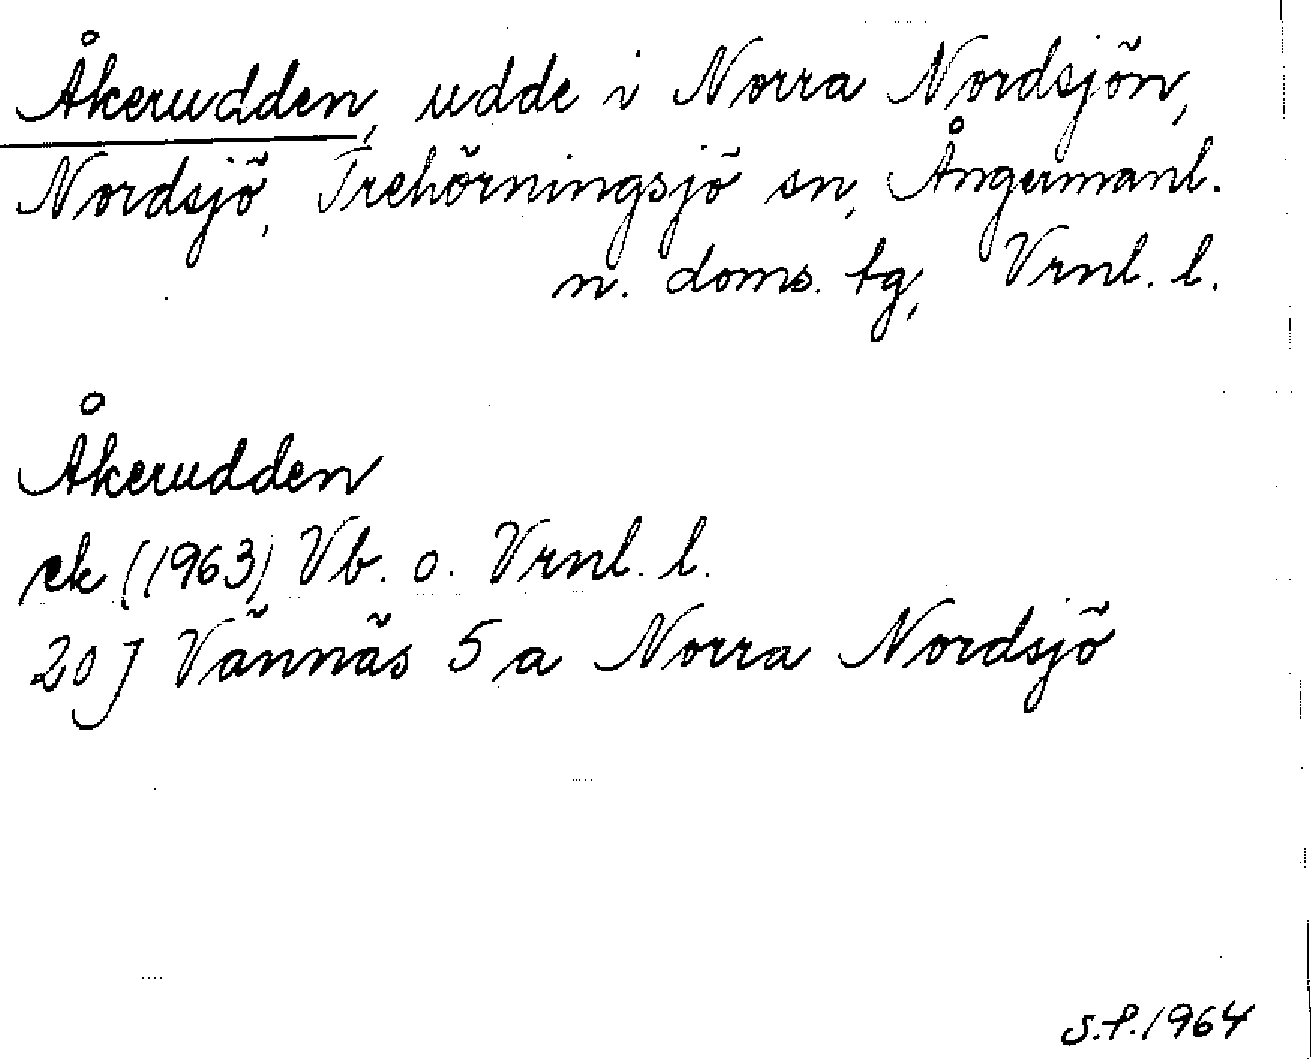 Åkerudden, udde i Norra Nordsjön,
Nordsjö, Trehörningsjö sn, Ångermanl.
n. doms. tg, Vrnl. l.
Åkerudden
ek (1963) Vb. o. Vrnl. l.
20 J Vännäs 5 a Norra Nordsjö
S.P. 1964